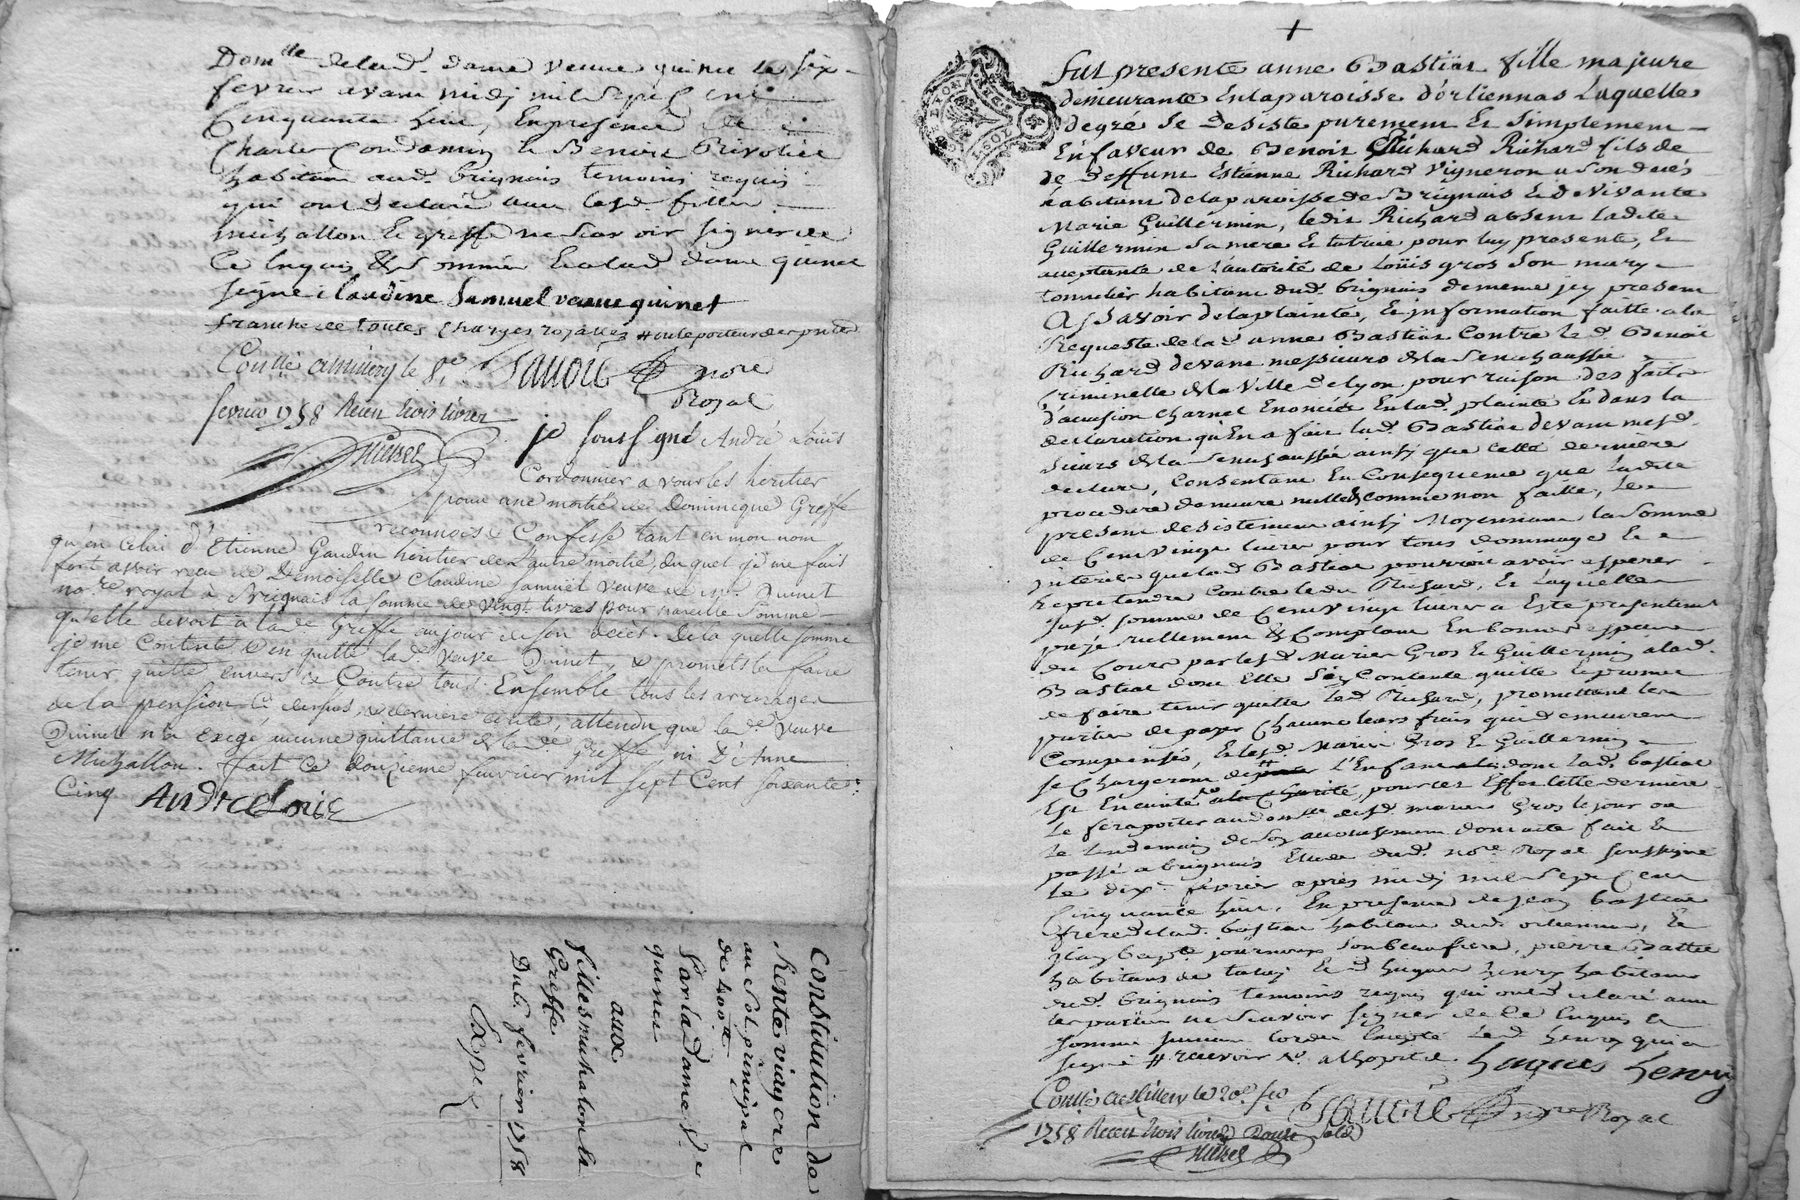 Dom.lle de lad. dame veuve quinet le six
fevrier avant midj mil sept Cent
Cinquante huit, En presence de
Charles Condamin & Benoit Rivoliet
habitants aud. brignais temoins requis
qui ont declaré avec lesd. filles
michallon & greffe ne scavoir signer de
Ce Enquis & Sommées Et alad. dame quinet
signé Claudine Samuel veuve quinet
franche de toutes Charges royalles # ou le porteur
Conllé a millery le 8e
no.re
Royal
fevrier 1758 Recu trois livres
je soussigné André Loüis
Cordonnier a vourles heritier
pour une moitié de Dominique Greffe
reconnois & Confesse tant en mon nom
qu'en celui d'Etienne Gaudin héritier de l'autre moitié, du quel je me fais
fort avoir reçu de Demoiselle Claudine Samuël veuve de mr. Quinet
no.re royal à Brignais la somme de vingt livres pour pareille Somme
qu'elle devoit à lade Greffe au jour de son décès. De la quelle somme
je me Contente & en quitte lad.e veuve Quinet, & promets la faire
tenir quitte envers & Contre tous. Ensemble tous les arrerages
de la pension Cy dessus, & derniere cédulé, attendu que la d.e veuve
Quinet n'a exigé aucune quittance de lade Greffe ni D'Anne
Michallon. fait ce douzieme fevrier mil sept Cent soixante
Cinq André Loüis
Constitution de
Rente viagere
au Sol. prinipal
de 400 tt
Par la Dame Ve
quinet
aux
filles michalon &
Greffe.
Du 6. fevrier 1758
Exped
Fut presente anne Bastiat fille majeure
demeurante En la paroisse d'orliennas Laquelle
de gré se desiste purement & simplement
En faveur de Benoit Richard fils de
de deffunt Estienne Richard Vigneron a son decés
habitant de la paroisse de Brignais & de Vivante
Marie Guillermin, ledit Richard absent ladite
Guillermin sa mere & tutrice pour luy presente, &
acceptante de l'autorité de Loüis gros son mary
tonnelier habitant dud. brignais de meme jcy present
Assavoir de la plainte, & information faitte a la
Requeste de lad. anne Bastiat Contre led. Benoit
Richard devant messieurs de la Senechaussée
Criminelle de la Ville de Lyon pour raison des faits
charnel Enoncés En lad. plainte & dans la
declaration qu'En a fait lad. Bastiat devant mesd.
sieurs de la Senechaussée ainsy que cette derniere
declare, Consentant En Consequence que ladite
procedure demeure nulle & comme non faitte, le
present desistement ainsy Moyennant la somme
de Cent vingt livres pour tous dommages &
interets que lad. Bastiat pourroit avoir esperer
& pretendre Contre ledit Richard, & laquelle
susd. somme de Cent vingt livres a Esté presentement
payé reellement & Comptant En bonnes especes
du Cours par lesd. Mariés Gros & Guillermin a lad.
Bastiat dont Elle se Contente quitte & promet
de faire tenir quitte led. Richard, promettant les
parties de payer Chacune leurs frais qui demeurent
Compensés, & lesd. Mariés Gros & Guillermin
se Chargeront de # l'Enfant dont lad. bastiat
Est Enceinte a la Charité, pour cet Effet cette derniere
le fera porter au dom.lle desd. mariés Gros le jour ou
le lendemain de son accouchement dont acte fait &
passé a brignais Etude dud. no.re Royal soussigné
le dix.e fevrier après midj mil sept Cent
Cinquante huit, En presence de jean bastiat
frere de lad. bastiat habitant dud. orliennas, &
jean bap.te journoux son beaufrere, pierre
habitant de & de hugues henry habitant
dud. brignais temoins requis qui ont declaré avec
les parties ne scavoir signer de Ce Enquis &
sommés Excepté led. henry qui a
signé # recevoir a l'hopital. hugues henry
Conllé a millery le 20e fev
no.re Royal
1758 Recu trois livres Douze sols